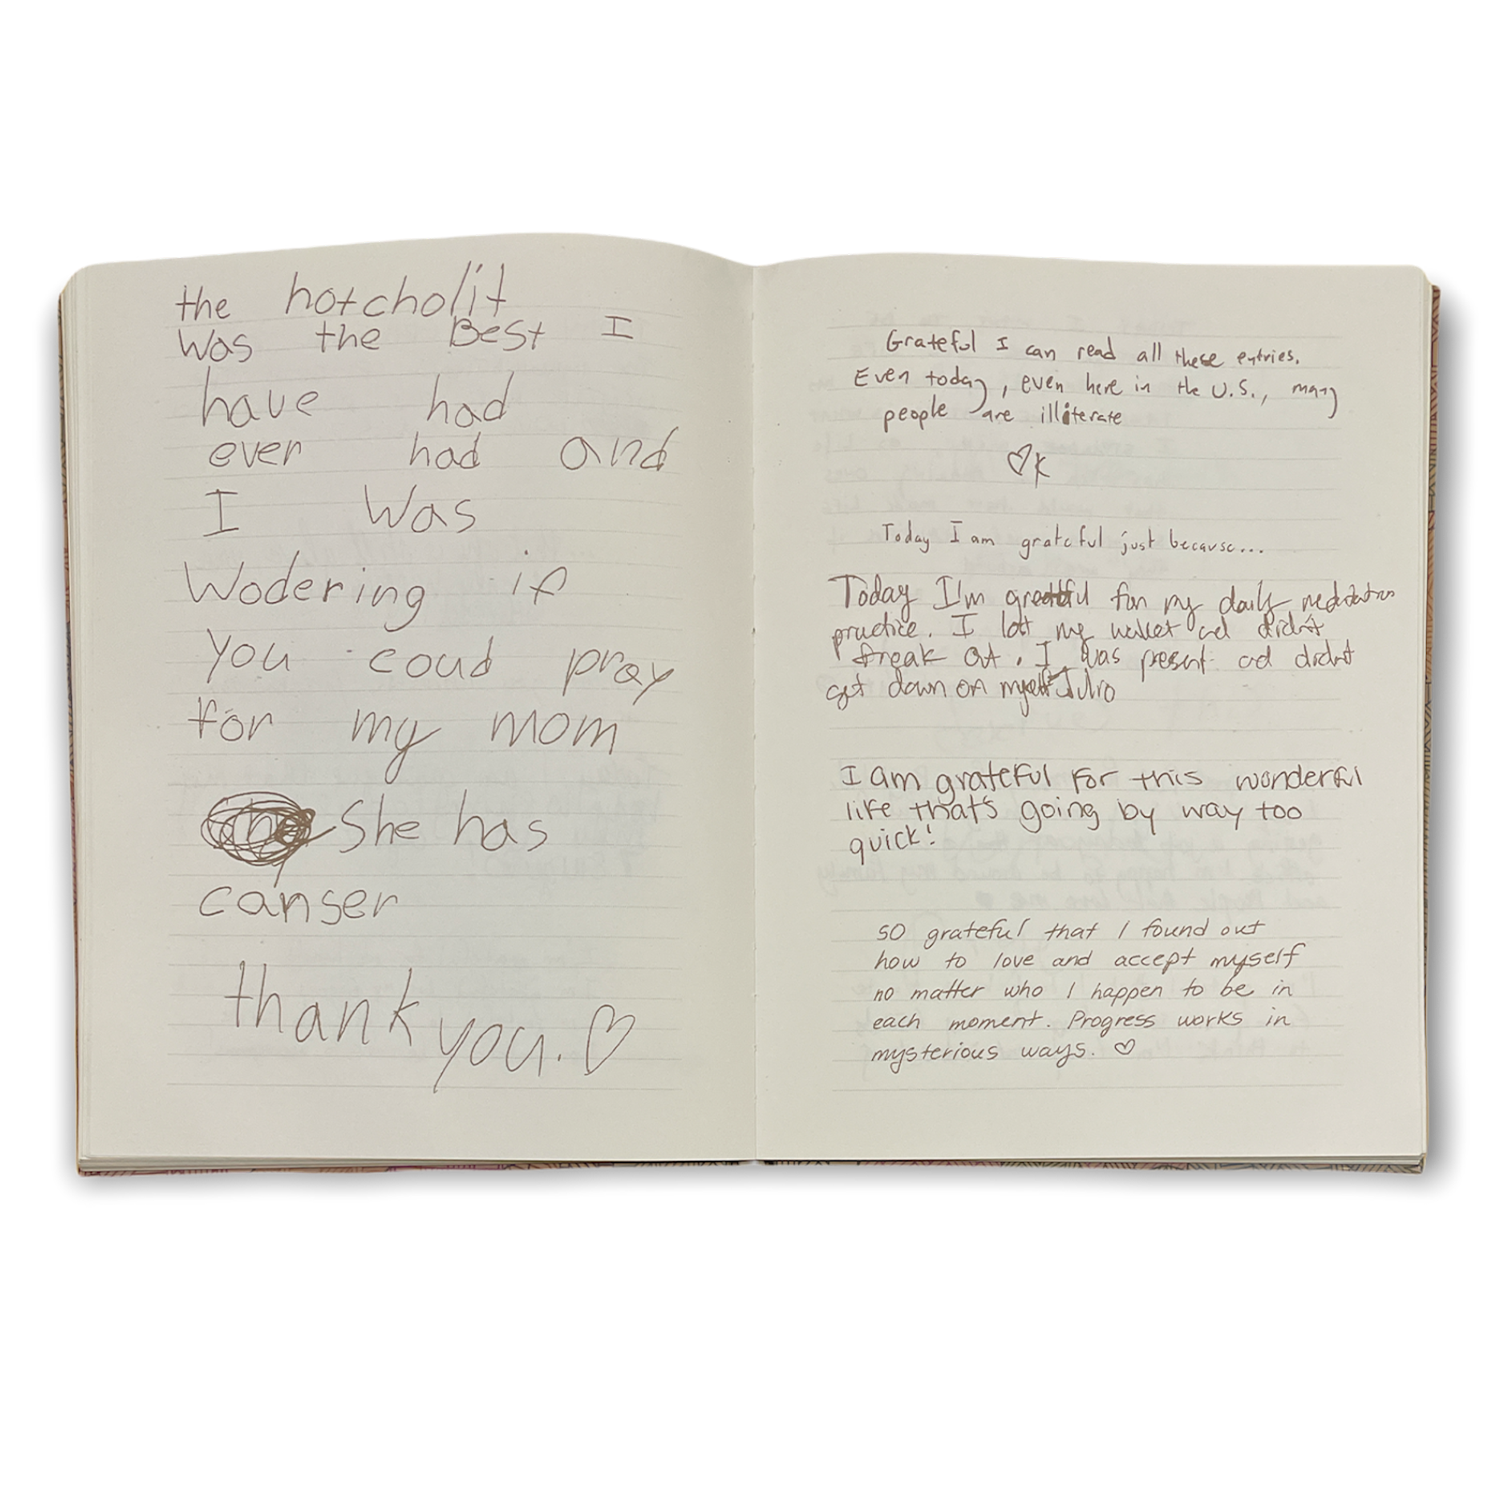 the hotcholit
was the Best I
have had
ever had and
I was
wodering if
you coud pray
for my mom
She has
canser
thank you. ♡
Grateful I can read all these entries.
Even today, even here in the U.S., many
people are illiterate
♡K
Today I am grateful just because...
Today I'm grateful for my daily meditation
practice. I lost my wallet and didn't
freak out. I was present and didn't
get down on myself Julio
I am grateful for this wonderful
life that's going by way too
quick!
so grateful that I found out
how to love and accept myself
no matter who I happen to be in
each moment. Progress works in
mysterious ways. ♡